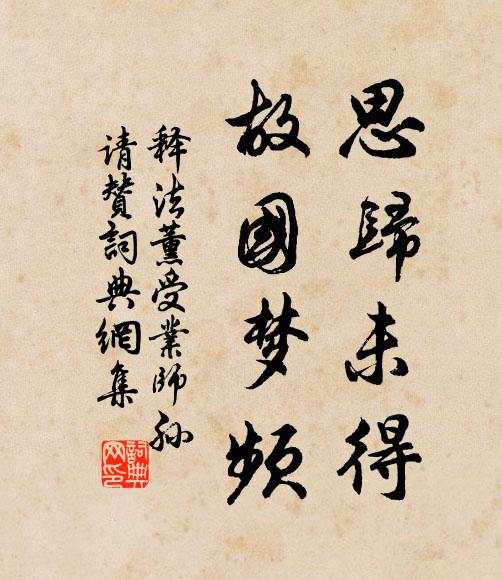 思歸未得
故國梦頻
释法薰受業師孙
请贊詞典網集
詞典网印